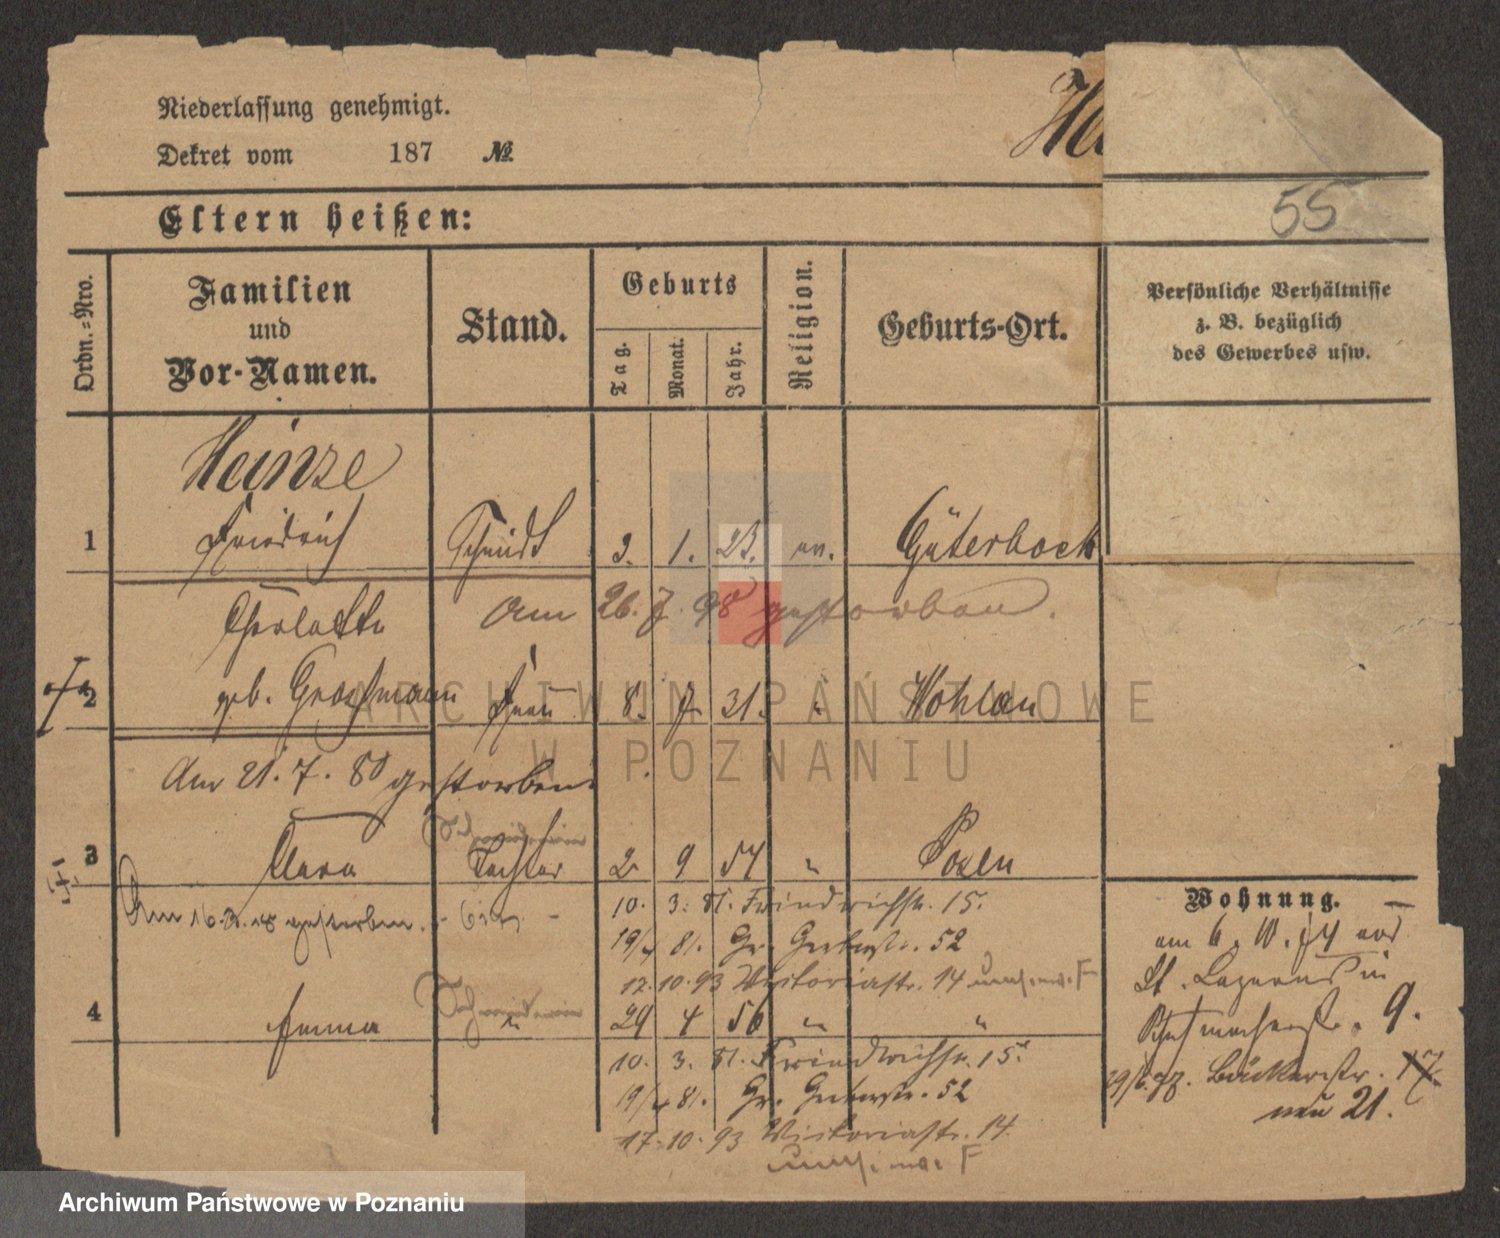 Niederlassung genehmigt.
Dekret vom 187 №
55
Eltern heißen:
Ordn.=Nro.
Familien
und
Vor-Namen.
Stand.
Geburts
Tag.
Monat.
Jahr.
Religion.
Geburts-Ort.
Persönliche Verhältnisse
z. B. bezüglich
des Gewerbes usw.
Heinze
1 Friedrich Schmidt 3. 1. 23. ev. Güterbock
Charlotte am 26. 7. 98 gestorben.
2 geb. Grossmann Frau 8. 7. 31. " Wohlau
Am 21. 7. 80 gestorben
Schneiderin
3 Clara Tochter 2 9 54 " Posen
Am 16.3.18 gestorben.
10. 3. 81. Friedrichstr. 15.
19/4 81. Gr. Gerberstr. 52
17.10.93 Victoriastr. 14
Schneiderin
4 Emma " 29 4 56 " "
10. 3. 81. Friedrichstr. 15.
19/4 81. Gr. Gerberstr. 52
17.10.93 Victoriastr. 14
Wohnung.
am 6. 10. 74
St. Lazarus in
9.
Bäckerstr. 17
neu 21.
ARCHIWUM PAŃSTWOWE
W POZNANIU
Archiwum Państwowe w Poznaniu